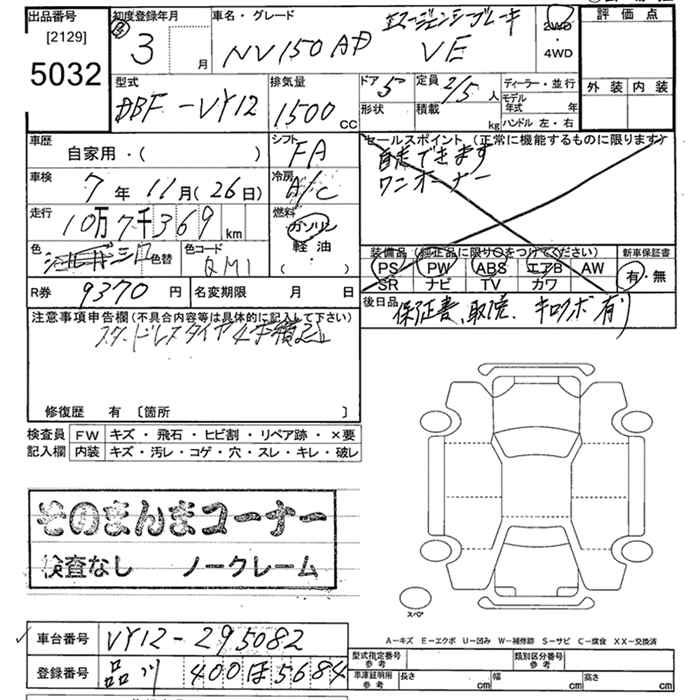 出品番号
[2129]
5032
初度登録年月
3 月
車名・グレード
NV150 AD
エマージェンシーブレーキ
VE
2WD
・
4WD
評価点
外装 内装
型式
DBF-VY12
排気量
1500 CC
ドア 5
形状
定員 2/5 人
積載 kg
ディーラー・並行
モデル年式 年
ハンドル 左・右
車歴
自家用・( )
シフト
FA
車検
7年 11月(26日)
冷房
A/C
走行
10万7千369 km
燃料
ガソリン
軽油
( ・ )
色
シロ 色替
色コード
QM1
セールスポイント (正常に機能するものに限ります)
自走できます
ワンオーナー
装備品(純正品に限り○をつけてください)
PS PW ABS エアB AW
SR ナビ TV カワ
新車保証書
有・無
R券 9370 円
名変期限 月 日
後日品
保証書、取説、キロクボ 有り
注意事項申告欄(不具合内容等は具体的に記入して下さい)
スタッドレスタイヤ4本積込
修復歴 有 〔箇所 〕
検査員 FW キズ・飛石・ヒビ割・リペア跡・×要
記入欄 内装 キズ・汚レ・コゲ・穴・スレ・キレ・破レ
そのまんまコーナー
検査なし ノークレーム
スペア
A−キズ E−エクボ U−凹み W−補修跡 S−サビ C−腐食 XX−交換済
車台番号 VY12-295082
登録番号 品川 400 ほ 5684
型式指定番号
参考
類別区分番号
参考
車庫証明用
参考
長さ cm 幅 cm 高さ cm